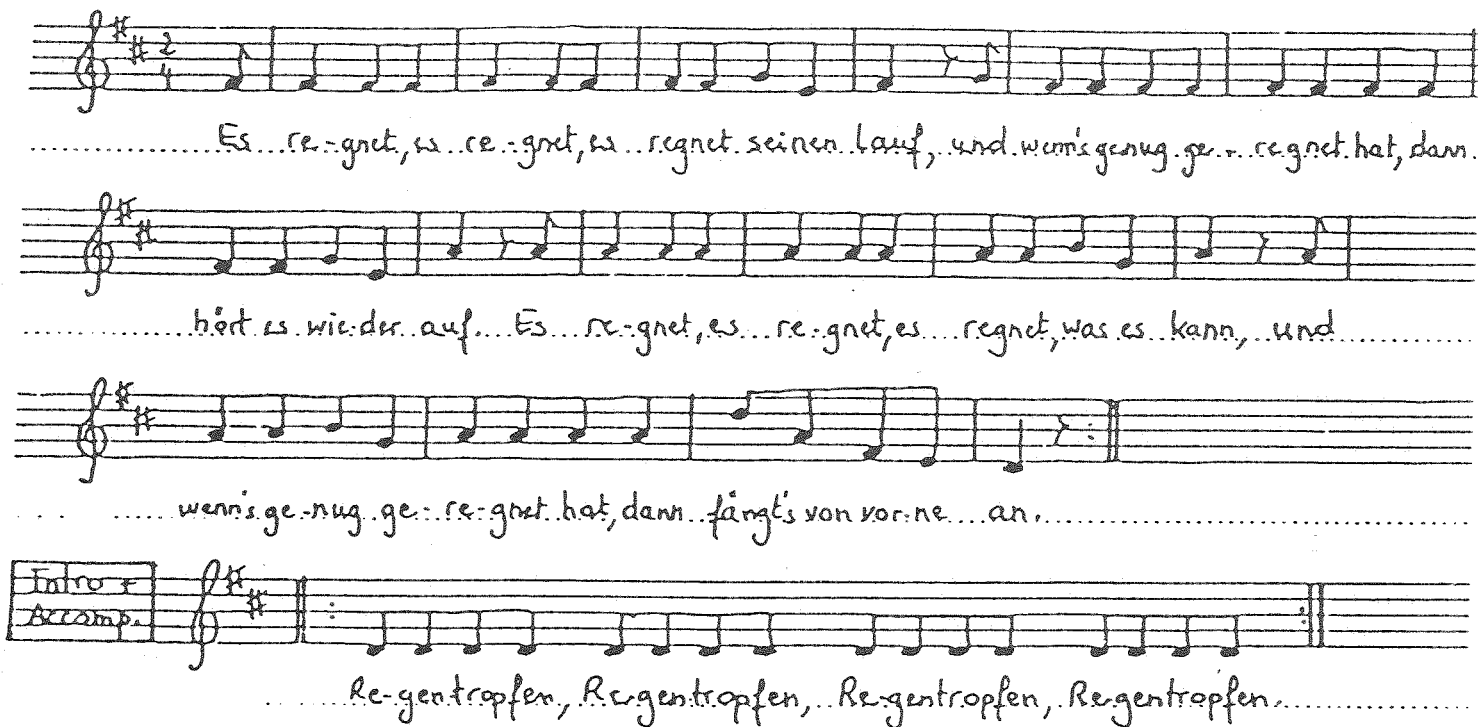 2
4
Es re-gnet, es re-gnet, es regnet seinen lauf, und wenn's genug ge-regnet hat, dann
hört es wie-der auf. Es re-gnet, es re-gnet, es regnet, was es kann, und
wenn's ge-nug ge-re-gnet hat, dann fängt's von vor-ne an.
Intro +
Accomp.
Re-gentropfen, Re-gentropfen, Re-gentropfen, Re-gentropfen.